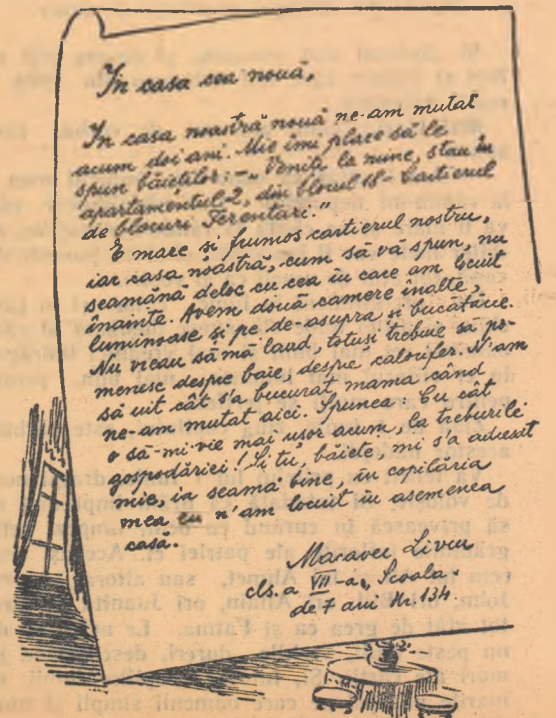 In casa cea nouă,
In casa noastră nouă ne-am mutat
acum doi ani. Mie îmi place să le
spun băieților: — „Veniți la mine, stau în
apartamentul 2, din blocul 18 - Cartierul
de blocuri Ferentari."
E mare și frumos cartierul nostru,
iar casa noastră, cum să vă spun, nu
seamănă deloc cu cea în care am locuit
înainte. Avem două camere înalte,
luminoase și pe de-asupra și bucătărie.
Nu vreau să mă laud, totuși trebuie să po-
menesc despre baie, despre calorifer. N'am
să uit cât s'a bucurat mama când
ne-am mutat aici. Spunea: Cu cât
o să-mi vie mai ușor acum, la treburile
gospodăriei! Și tu, băiete, mi s'a adresat
mie, ia seama bine, în copilăria
mea eu n'am locuit în asemenea
casă.
Maravec Liviu
cls. a VII-a, Școala
de 7 ani Nr. 134